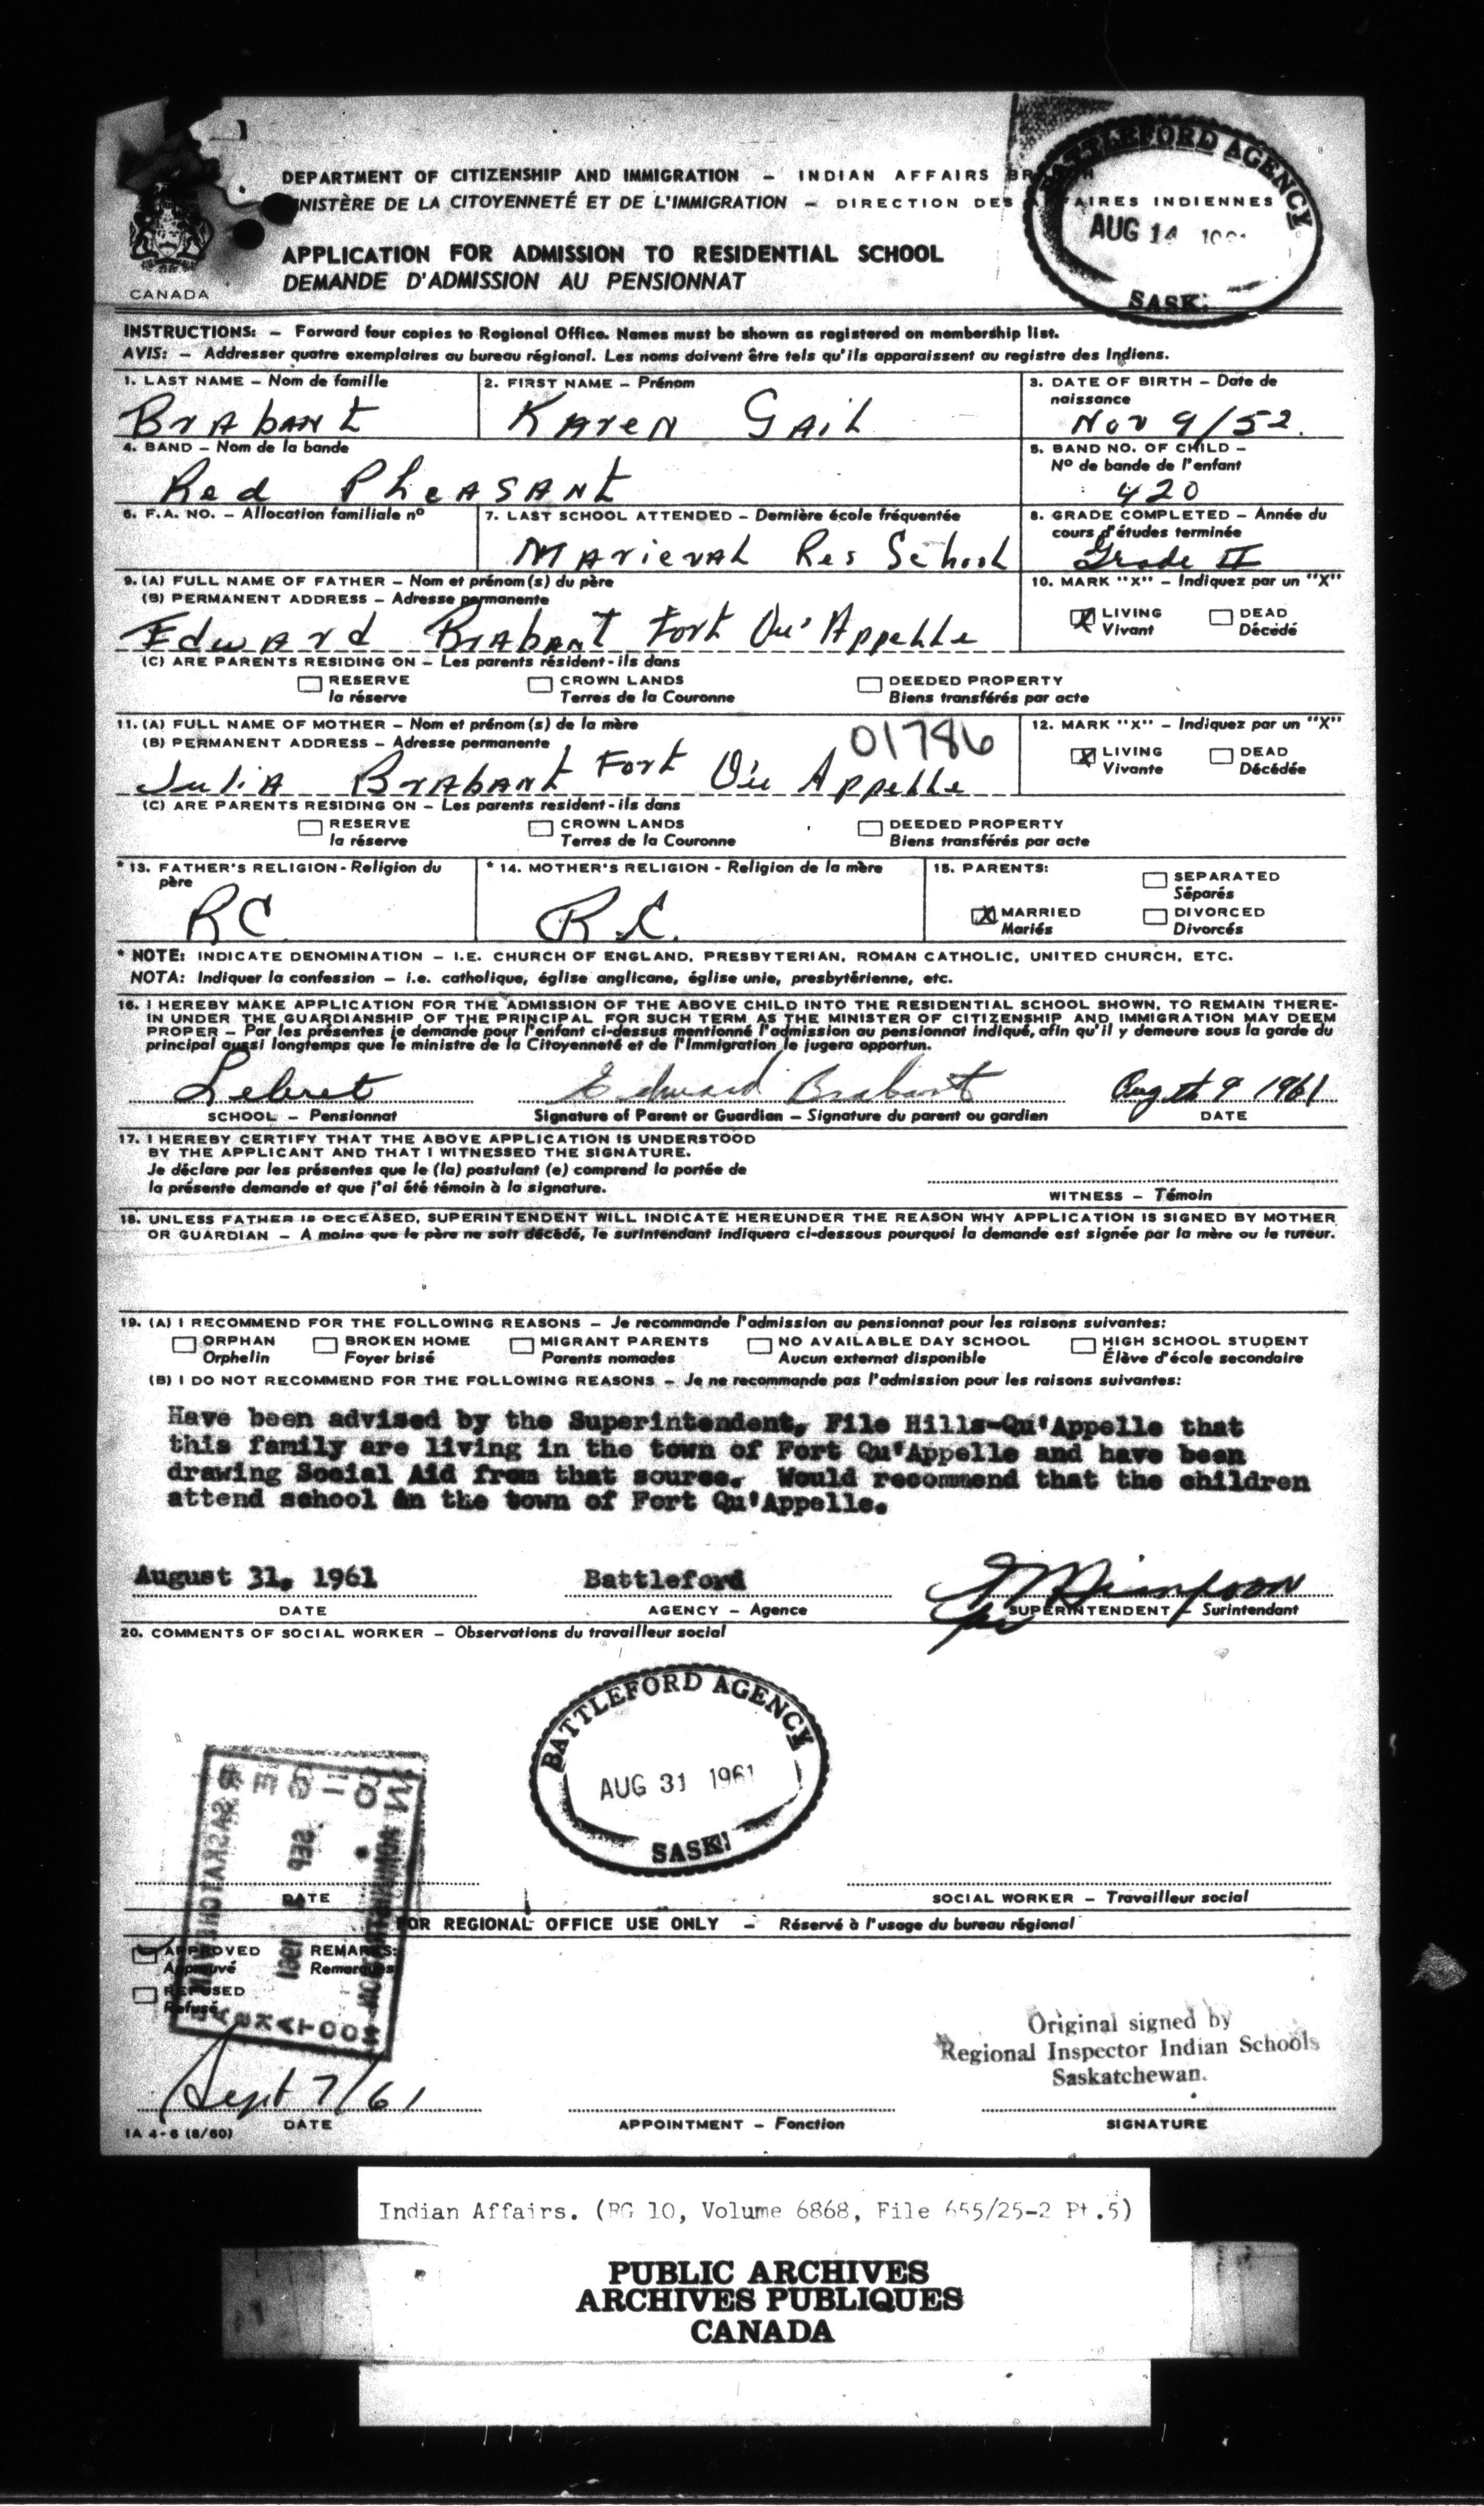 DEPARTMENT OF CITIZENSHIP AND IMMIGRATION – INDIAN AFFAIRS BRANCH
MINISTÈRE DE LA CITOYENNETÉ ET DE L'IMMIGRATION – DIRECTION DES AFFAIRES INDIENNES
BATTLEFORD AGENCY
AUG 14
SASK.
APPLICATION FOR ADMISSION TO RESIDENTIAL SCHOOL
DEMANDE D'ADMISSION AU PENSIONNAT
CANADA
INSTRUCTIONS: – Forward four copies to Regional Office. Names must be shown as registered on membership list.
AVIS: – Addresser quatre exemplaires au bureau régional. Les noms doivent être tels qu'ils apparaissent au registre des Indiens.
1. LAST NAME – Nom de famille
Brabant
2. FIRST NAME – Prénom
Karen Gail
3. DATE OF BIRTH – Date de naissance
Nov 9/52.
4. BAND – Nom de la bande
Red Pheasant
5. BAND NO. OF CHILD –
Nº de bande de l'enfant
420
6. F.A. NO. – Allocation familiale nº
7. LAST SCHOOL ATTENDED – Dernière école fréquentée
Marieval Res School
8. GRADE COMPLETED – Année du
cours d'études terminée
Grade II
9. (A) FULL NAME OF FATHER – Nom et prénom(s) du père
(B) PERMANENT ADDRESS – Adresse permanente
Edward Brabant Fort Qu'Appelle
10. MARK "X" – Indiquez par un "X"
X LIVING DEAD
Vivant Décédé
(C) ARE PARENTS RESIDING ON – Les parents résident-ils dans
RESERVE CROWN LANDS DEEDED PROPERTY
la réserve Terres de la Couronne Biens transférés par acte
11. (A) FULL NAME OF MOTHER – Nom et prénom(s) de la mère
(B) PERMANENT ADDRESS – Adresse permanente
01786
Julia Brabant Fort Qu' Appelle
12. MARK "X" – Indiquez par un "X"
X LIVING DEAD
Vivante Décédée
(C) ARE PARENTS RESIDING ON – Les parents resident-ils dans
RESERVE CROWN LANDS DEEDED PROPERTY
la réserve Terres de la Couronne Biens transférés par acte
* 13. FATHER'S RELIGION - Religion du
père
RC
* 14. MOTHER'S RELIGION - Religion de la mère
R.C.
15. PARENTS:
SEPARATED
Séparés
X MARRIED DIVORCED
Mariés Divorcés
* NOTE: INDICATE DENOMINATION – I.E. CHURCH OF ENGLAND, PRESBYTERIAN, ROMAN CATHOLIC, UNITED CHURCH, ETC.
NOTA: Indiquer la confession – i.e. catholique, église anglicane, église unie, presbytérienne, etc.
16. I HEREBY MAKE APPLICATION FOR THE ADMISSION OF THE ABOVE CHILD INTO THE RESIDENTIAL SCHOOL SHOWN, TO REMAIN THERE-
IN UNDER THE GUARDIANSHIP OF THE PRINCIPAL FOR SUCH TERM AS THE MINISTER OF CITIZENSHIP AND IMMIGRATION MAY DEEM
PROPER – Par les présentes je demande pour l'enfant ci-dessus mentionné l'admission au pensionnat indiqué, afin qu'il y demeure sous la garde du
principal aussi longtemps que le ministre de la Citoyenneté et de l'Immigration le jugera opportun.
Lebret Edward Brabant Aug 9 1961
SCHOOL – Pensionnat Signature of Parent or Guardian – Signature du parent ou gardien DATE
17. I HEREBY CERTIFY THAT THE ABOVE APPLICATION IS UNDERSTOOD
BY THE APPLICANT AND THAT I WITNESSED THE SIGNATURE.
Je déclare par les présentes que le (la) postulant (e) comprend la portée de
la présente demande et que j'ai été témoin à la signature.
WITNESS – Témoin
18. UNLESS FATHER IS DECEASED, SUPERINTENDENT WILL INDICATE HEREUNDER THE REASON WHY APPLICATION IS SIGNED BY MOTHER
OR GUARDIAN – A moins que le père ne soit décédé, le surintendant indiquera ci-dessous pourquoi la demande est signée par la mère ou le tuteur.
19. (A) I RECOMMEND FOR THE FOLLOWING REASONS – Je recommande l'admission au pensionnat pour les raisons suivantes:
ORPHAN BROKEN HOME MIGRANT PARENTS NO AVAILABLE DAY SCHOOL HIGH SCHOOL STUDENT
Orphelin Foyer brisé Parents nomades Aucun externat disponible Élève d'école secondaire
(B) I DO NOT RECOMMEND FOR THE FOLLOWING REASONS – Je ne recommande pas l'admission pour les raisons suivantes:
Have been advised by the Superintendent, File Hills-Qu'Appelle that
this family are living in the town of Fort Qu'Appelle and have been
drawing Social Aid from that source. Would recommend that the children
attend school in the town of Fort Qu'Appelle.
August 31, 1961 Battleford Simpson
DATE AGENCY – Agence SUPERINTENDENT – Surintendant
20. COMMENTS OF SOCIAL WORKER – Observations du travailleur social
BATTLEFORD AGENCY
AUG 31 1961
SASK.
DATE SOCIAL WORKER – Travailleur social
FOR REGIONAL OFFICE USE ONLY – Réservé à l'usage du bureau régional
APPROVED REMARKS:
Approuvé Remarques
REFUSED
Refusé
SEP
SASKATOON
Original signed by
Regional Inspector Indian Schools
Saskatchewan.
Sept 7/61
DATE APPOINTMENT – Fonction SIGNATURE
IA 4-6 (8/60)
Indian Affairs. (RG 10, Volume 6868, File 655/25-2 Pt.5)
PUBLIC ARCHIVES
ARCHIVES PUBLIQUES
CANADA